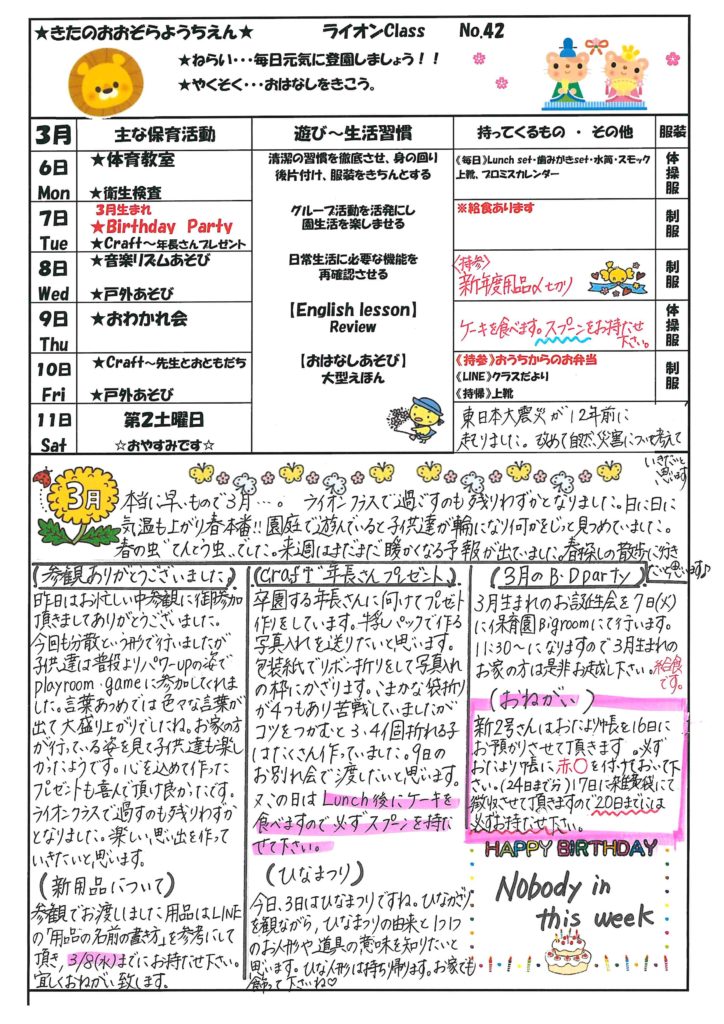 ★きたのおおぞらようちえん★　ライオンClass　No.42
★ねらい･･･毎日元気に登園しましょう！！
★やくそく･･･おはなしをきこう。
3月　主な保育活動　遊び～生活習慣　持ってくるもの ・ その他　服装
6日 Mon
★体育教室
★衛生検査
清潔の習慣を徹底させ、身の回り
後片付け、服装をきちんとする
《毎日》Lunch set・歯みがきset・水筒・スモック
上靴、プロミスカレンダー
体操服
7日 Tue
3月生まれ
★Birthday Party
★Craft～年長さんプレゼント
グループ活動を活発にし
園生活を楽しませる
※給食あります
制服
8日 Wed
★音楽リズムあそび
★戸外あそび
日常生活に必要な機能を
再確認させる
〈持参〉
新年度用品〆切り
制服
9日 Thu
★おわかれ会
【English lesson】
Review
ケーキを食べます。スプーンをお持たせ
下さい。
体操服
10日 Fri
★Craft～先生とおともだち
★戸外あそび
【おはなしあそび】
大型えほん
《持参》おうちからのお弁当
《LINE》クラスだより
《持帰》上靴
制服
11日 Sat
第2土曜日
☆おやすみです☆
東日本大震災が12年前に
起りました。改めて自然災害について考えて
いきたいと
思います
3月
本当に早いもので3月…。ライオンクラスで過ごすのも残りわずかとなりました。日に日に
気温も上がり春本番!!園庭で遊んでいると子供達が輪になり何かをじっと見つめていました。
春の虫“てんとう虫”でした。来週はまだまだ暖かくなる予報が出ていました。春探しの散歩に行き
たいと思います♪
(参観ありがとうございました)
昨日はお忙しい中参観に御参加
頂きましてありがとうございました。
今回も分散という形で行いましたが
子供達は普段よりパワーupの姿で
playroom・gameに参加してくれま
した。言葉あつめでは色々な言葉が
出て大盛り上がりでしたね。お家の方
が行っている姿を見て子供達も楽し
かったようです。心を込めて作った
プレゼントも喜んで頂け良かったです。
ライオンクラスで過すのも残りわずか
となりました。楽しい思い出を作って
いきたいと思います。
(新用品について)
参観でお渡ししました用品はLINE
の「用品の名前の書き方」を参考にして
頂き、3/8(水)までにお持たせ下さい。
宜しくおねがい致します。
(Craft 年長さんプレゼント)
卒園する年長さんに向けてプレゼント
作りをしています。牛乳パックで作る
写真入れを送りたいと思います。
包装紙でリボン折りをして写真入れ
の枠にかざります。こまかな袋折り
が4つもあり苦戦していましたが
コツをつかむと3、4個折れる子
はたくさん作っていました。9日の
お別れ会で渡したいと思います。
又、この日はLunch後にケーキを
食べますので必ずスプーンを持た
せて下さい。
(ひなまつり)
今日、3日はひなまつりですね。ひなかざり
を観ながら、ひなまつりの由来と1つ1つ
のお人形や道具の意味を知りたいと
思います。ひな人形は持ち帰ります。お家でも
飾って下さいね♡
(3月のB・Dparty)
3月生まれのお誕生会を7日(火)
に保育園Bigroomにて行います。
11:30～になりますので3月生まれの
お家の方は是非お越し下さい。給食
です。
(おねがい)
新2号さんはおたより帳を16日に
お預かりさせて頂きます。必ず
おたより帳に赤○を付けておいて下
さい。(24日まで分)17日に雑費袋にて
徴収させて頂きますので20日までには
必ずお持たせ下さい。
HAPPY BIRTHDAY
Nobody in
this week